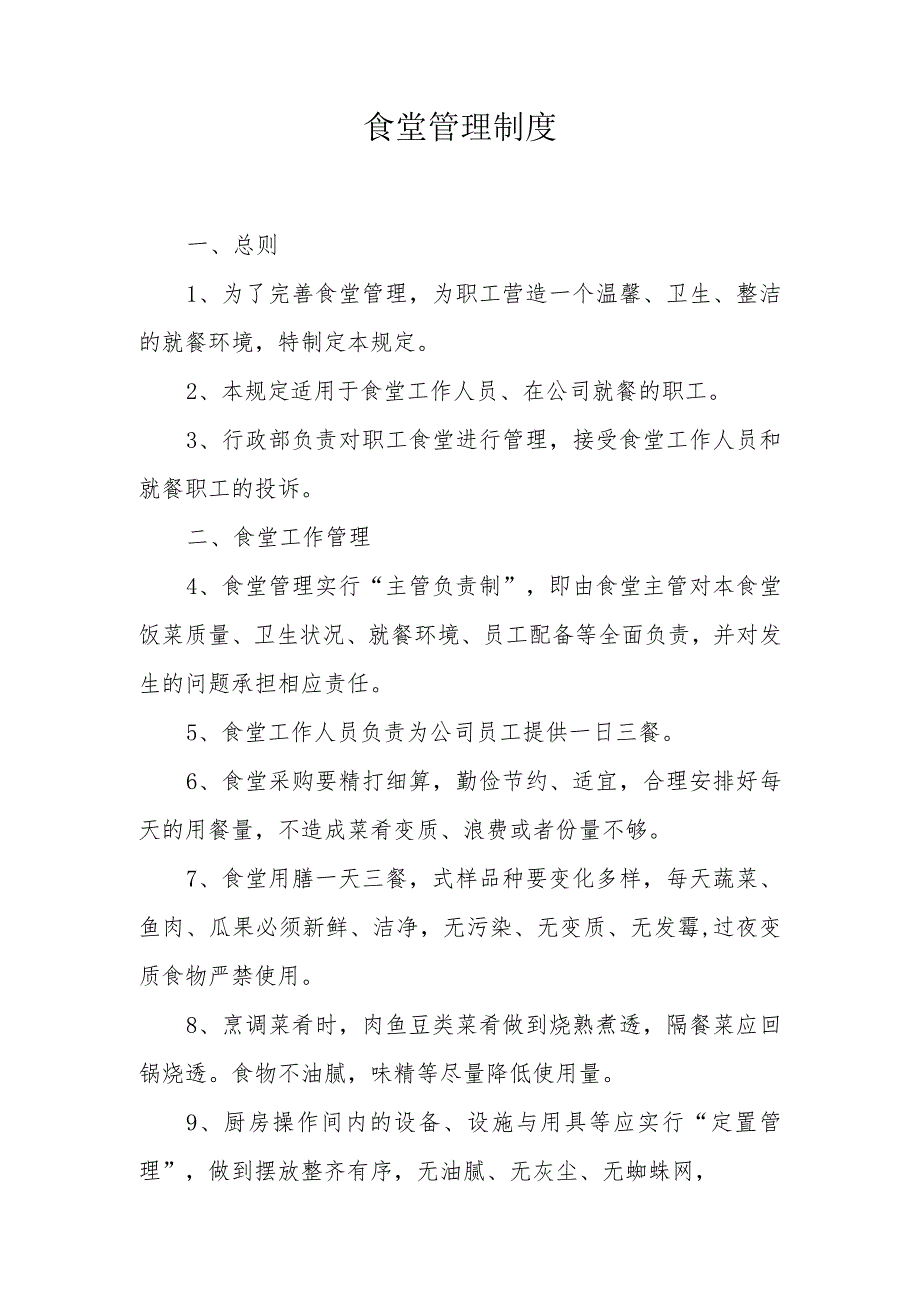 食堂管理制度
一、总则
1、为了完善食堂管理，为职工营造一个温馨、卫生、整洁
的就餐环境，特制定本规定。
2、本规定适用于食堂工作人员、在公司就餐的职工。
3、行政部负责对职工食堂进行管理，接受食堂工作人员和
就餐职工的投诉。
二、食堂工作管理
4、食堂管理实行“主管负责制”，即由食堂主管对本食堂
饭菜质量、卫生状况、就餐环境、员工配备等全面负责，并对发
生的问题承担相应责任。
5、食堂工作人员负责为公司员工提供一日三餐。
6、食堂采购要精打细算，勤俭节约、适宜，合理安排好每
天的用餐量，不造成菜肴变质、浪费或者份量不够。
7、食堂用膳一天三餐，式样品种要变化多样，每天蔬菜、
鱼肉、瓜果必须新鲜、洁净，无污染、无变质、无发霉,过夜变
质食物严禁使用。
8、烹调菜肴时，肉鱼豆类菜肴做到烧熟煮透，隔餐菜应回
锅烧透。食物不油腻，味精等尽量降低使用量。
9、厨房操作间内的设备、设施与用具等应实行“定置管
理”，做到摆放整齐有序，无油腻、无灰尘、无蜘蛛网，